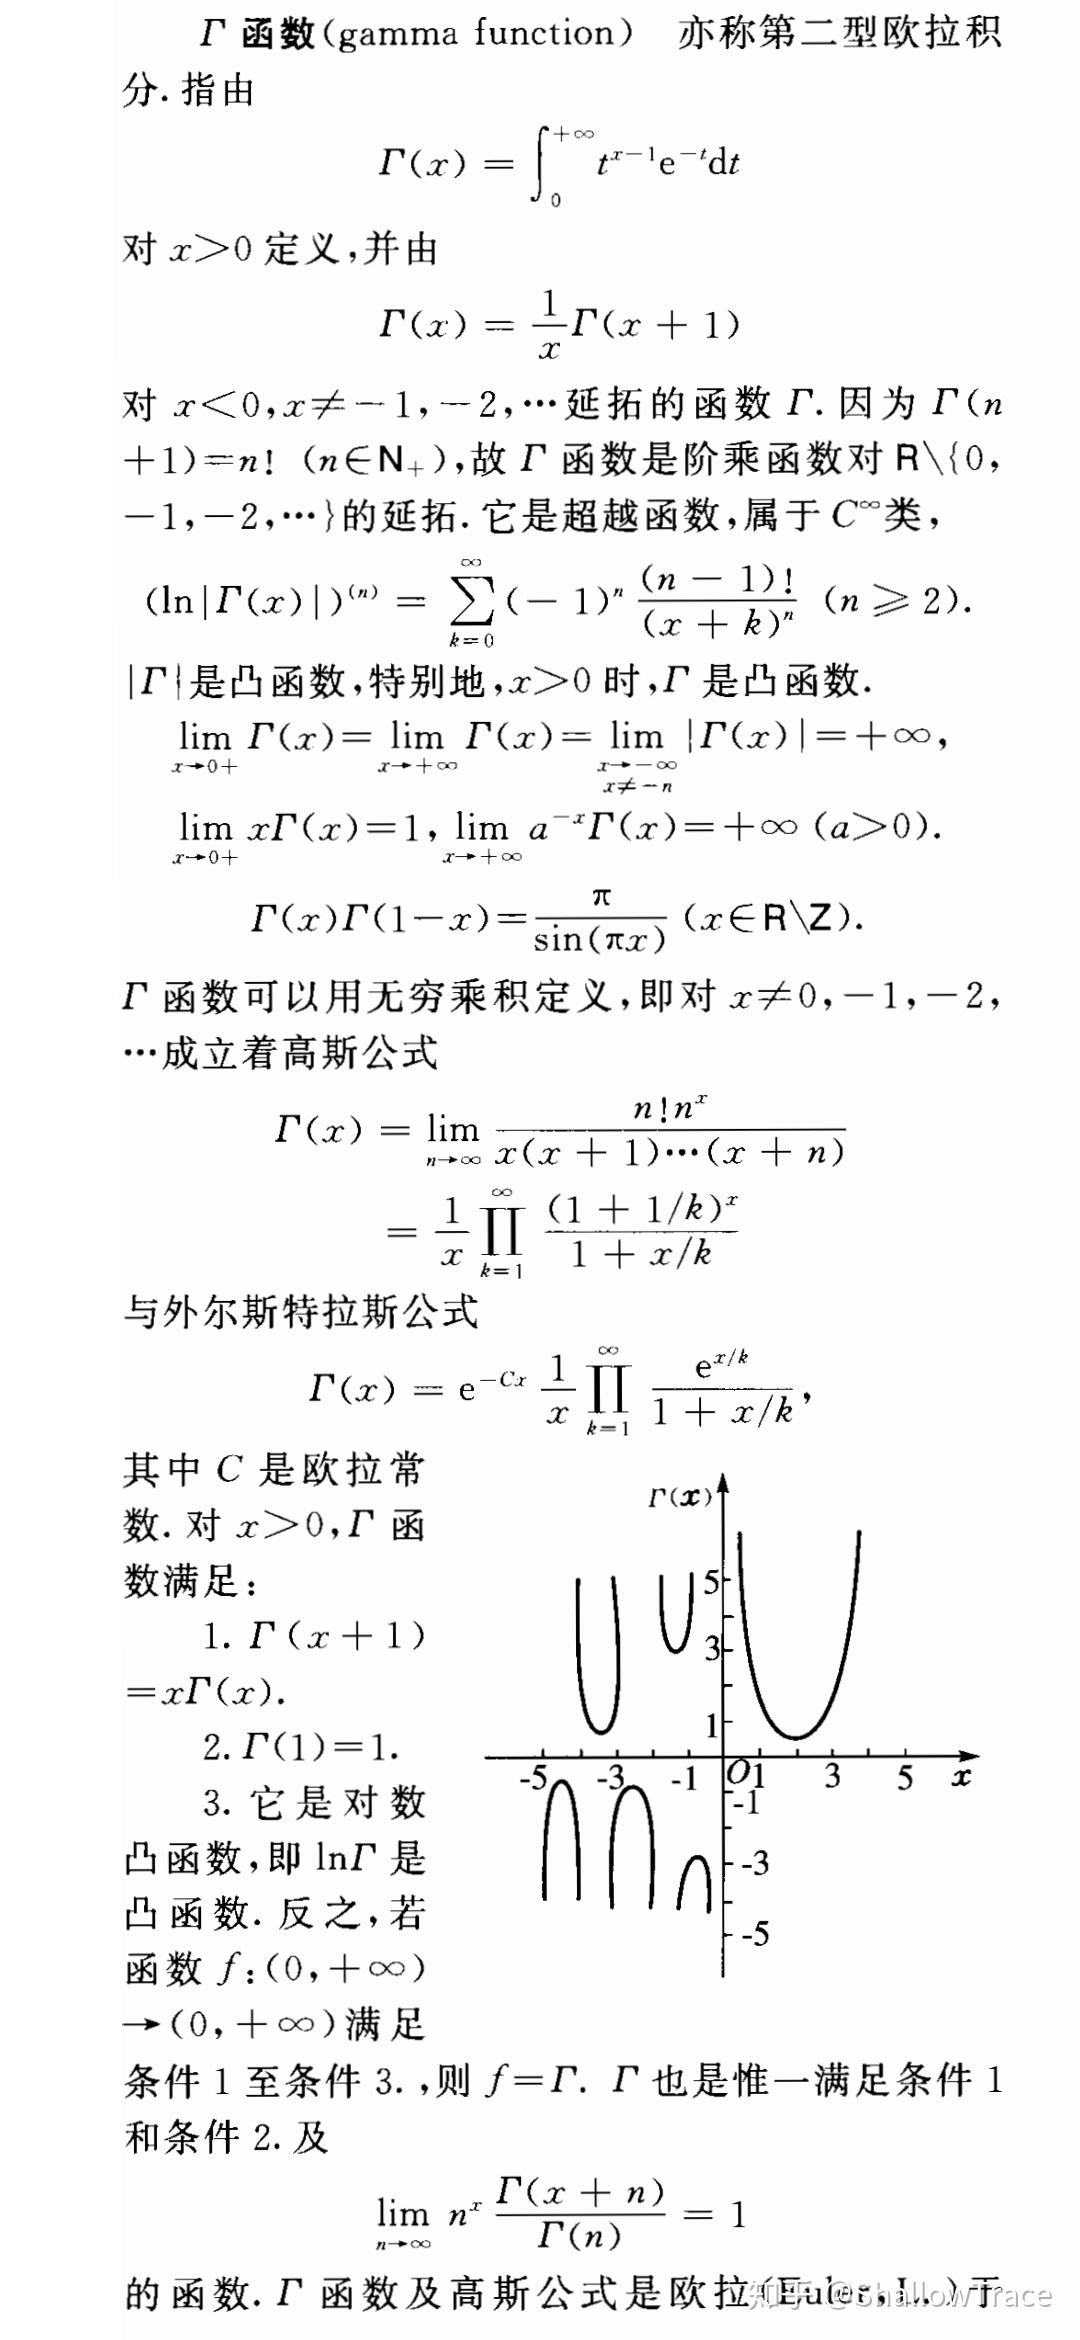 Γ 函数(gamma function) 亦称第二型欧拉积
分.指由
Γ(x) = ∫₀^{+∞} t^{x−1}e^{−t}dt
对 x>0 定义,并由
Γ(x) = \frac{1}{x}Γ(x + 1)
对 x<0,x≠−1,−2,…延拓的函数 Γ.因为 Γ(n
+1)=n! (n∈N₊),故 Γ 函数是阶乘函数对 R\{0,
−1,−2,…}的延拓.它是超越函数,属于 C^∞类,
(ln|Γ(x)|)^{(n)} = \sum_{k=0}^{∞}(−1)^n \frac{(n − 1)!}{(x + k)^n} (n ⩾ 2).
|Γ|是凸函数,特别地,x>0 时,Γ 是凸函数.
\lim_{x→0+} Γ(x)= \lim_{x→+∞} Γ(x)= \lim_{x→−∞, x≠−n} |Γ(x)|=+∞,
\lim_{x→0+} xΓ(x)=1, \lim_{x→+∞} a^{−x}Γ(x)=+∞ (a>0).
Γ(x)Γ(1−x)=\frac{π}{sin(πx)} (x∈R\Z).
Γ 函数可以用无穷乘积定义,即对 x≠0,−1,−2,
…成立着高斯公式
Γ(x) = \lim_{n→∞} \frac{n!n^x}{x(x + 1)…(x + n)}
= \frac{1}{x} \prod_{k=1}^{∞} \frac{(1 + 1/k)^x}{1 + x/k}
与外尔斯特拉斯公式
Γ(x) = e^{−Cx} \frac{1}{x} \prod_{k=1}^{∞} \frac{e^{x/k}}{1 + x/k},
其中 C 是欧拉常
数.对 x>0,Γ 函
数满足:
1. Γ(x+1)
=xΓ(x).
2. Γ(1)=1.
3. 它是对数
凸函数,即 lnΓ 是
凸函数.反之,若
函数 f:(0,+∞)
→(0,+∞)满足
Γ(x)
5
3
1
-5 -3 -1 O 1 3 5 x
-1
-3
-5
条件 1 至条件 3.,则 f=Γ. Γ 也是惟一满足条件 1
和条件 2.及
\lim_{n→∞} n^x \frac{Γ(x + n)}{Γ(n)} = 1
的函数.Γ 函数及高斯公式是欧拉(Euler,L.)于
知乎 @ShallowTrace